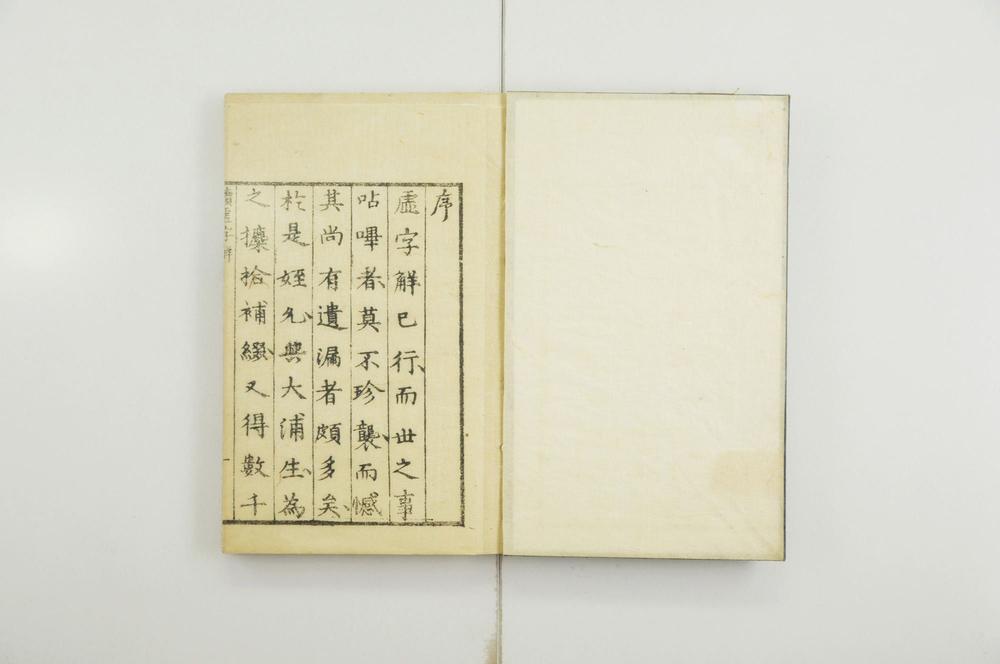 序
虛字解已行而世之事
呫嗶者莫不珍襲而憾
其尚有遺漏者頗多矣
於是姪允與大浦生為
之攗拾補綴又得數千
續虛字解
一